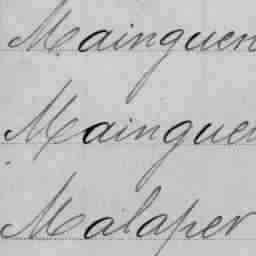 Mainguen
Maingue
Malaper